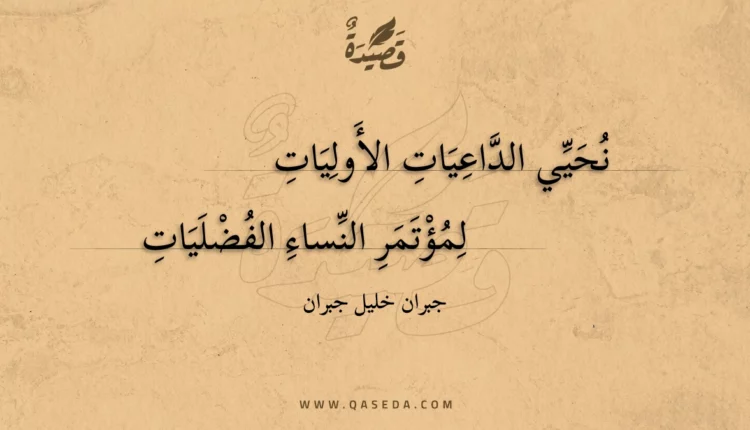 قَصِيدَةٌ
نُحَيِّي الدَّاعِيَاتِ الأَولِيَاتِ
لِمُؤْتَمَرِ النِّساءِ الفُضْلَيَاتِ
جبران خليل جبران
WWW.QASEDA.COM